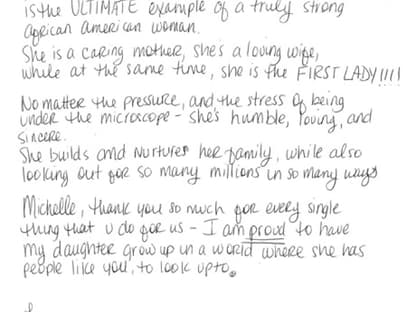 is the ULTIMATE example of a truly strong
african american woman.
She is a caring mother, she's a loving wife,
while at the same time, she is the FIRST LADY!!!!
No matter the pressure, and the stress of being
under the microscope - she's humble, loving, and
sincere.
She builds and nurtures her family, while also
looking out for so many millions in so many ways
Michelle, thank you so much for every single
thing that u do for us - I am proud to have
my daughter grow up in a world where she has
people like you, to look up to.